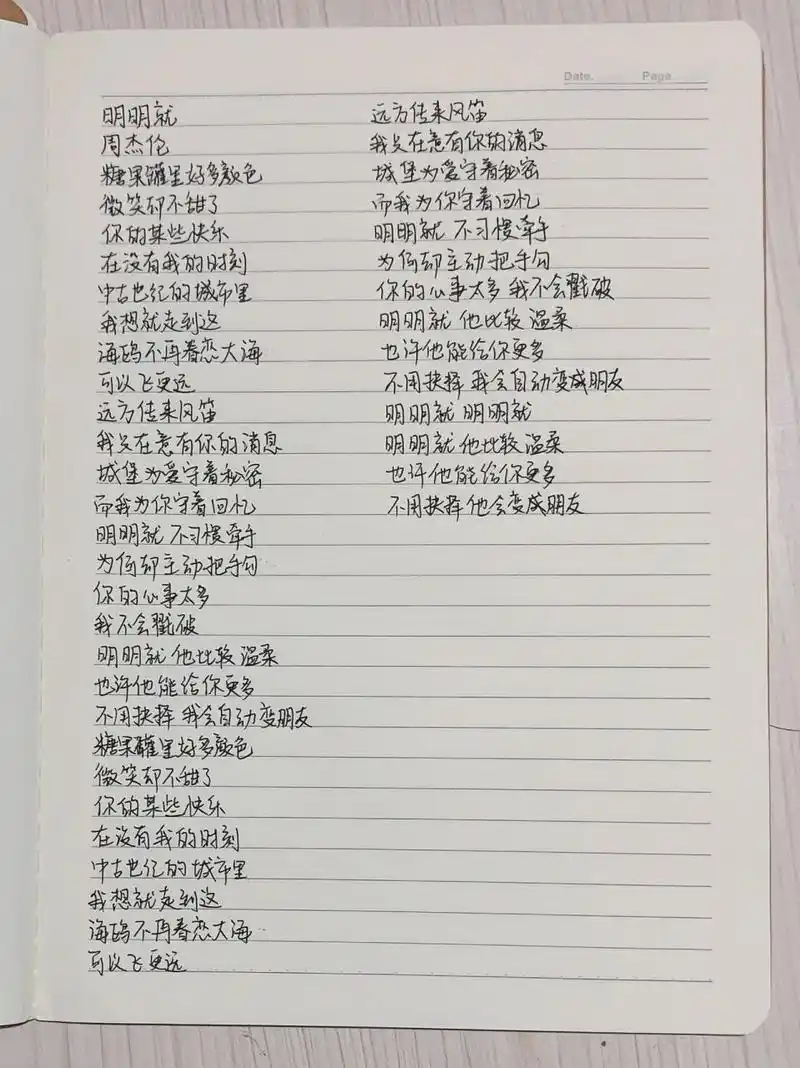 Date.
Page
明明就
周杰伦
糖果罐里好多颜色
微笑却不甜了
你的某些快乐
在没有我的时刻
中古世纪的城市里
我想就走到这
海鸥不再眷恋大海
可以飞更远
远方传来风笛
我只在意有你的消息
城堡为爱守着秘密
而我为你守着回忆
明明就 不习惯牵手
为何却主动把手勾
你的心事太多
我不会戳破
明明就 他比较 温柔
也许他能给你更多
不用抉择 我会自动变朋友
糖果罐里好多颜色
微笑却不甜了
你的某些快乐
在没有我的时刻
中古世纪的城市里
我想就走到这
海鸥不再眷恋大海
可以飞更远
远方传来风笛
我只在意有你的消息
城堡为爱守着秘密
而我为你守着回忆
明明就 不习惯牵手
为何却主动把手勾
你的心事太多 我不会戳破
明明就 他比较 温柔
也许他能给你更多
不用抉择 我会自动变成朋友
明明就 明明就
明明就 他比较 温柔
也许他能给你更多
不用抉择他会变成朋友